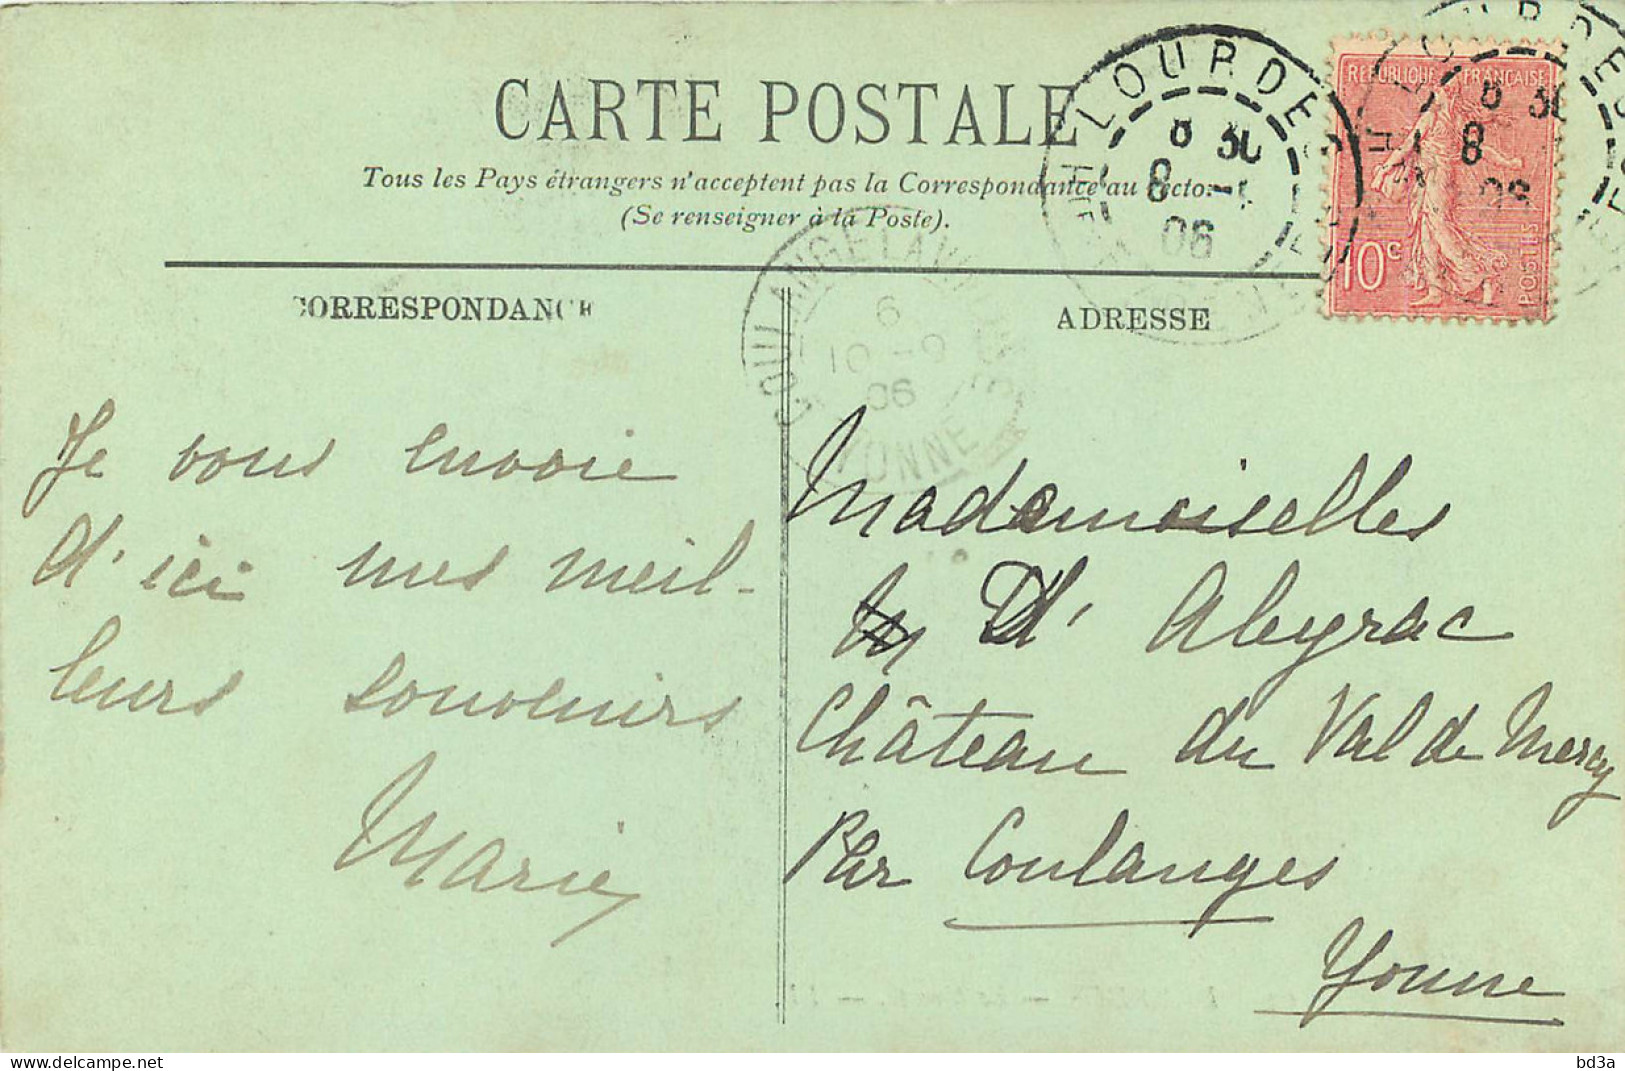 CARTE POSTALE
Tous les Pays étrangers n'acceptent pas la Correspondance au recto.
(Se renseigner à la Poste).
CORRESPONDANCE
ADRESSE
LOURDES
8 30
8
06
LOURDES
8 30
8
06
REPUBLIQUE FRANÇAISE
10c
POSTES
6
10-9
06
YONNE
Je vous envoie
d'ici mes meil-
leurs souvenirs
Marie
Mademoiselles
D' Aleyrac
Château du Val de Mercy
Par Coulanges
Yonne
bd3a